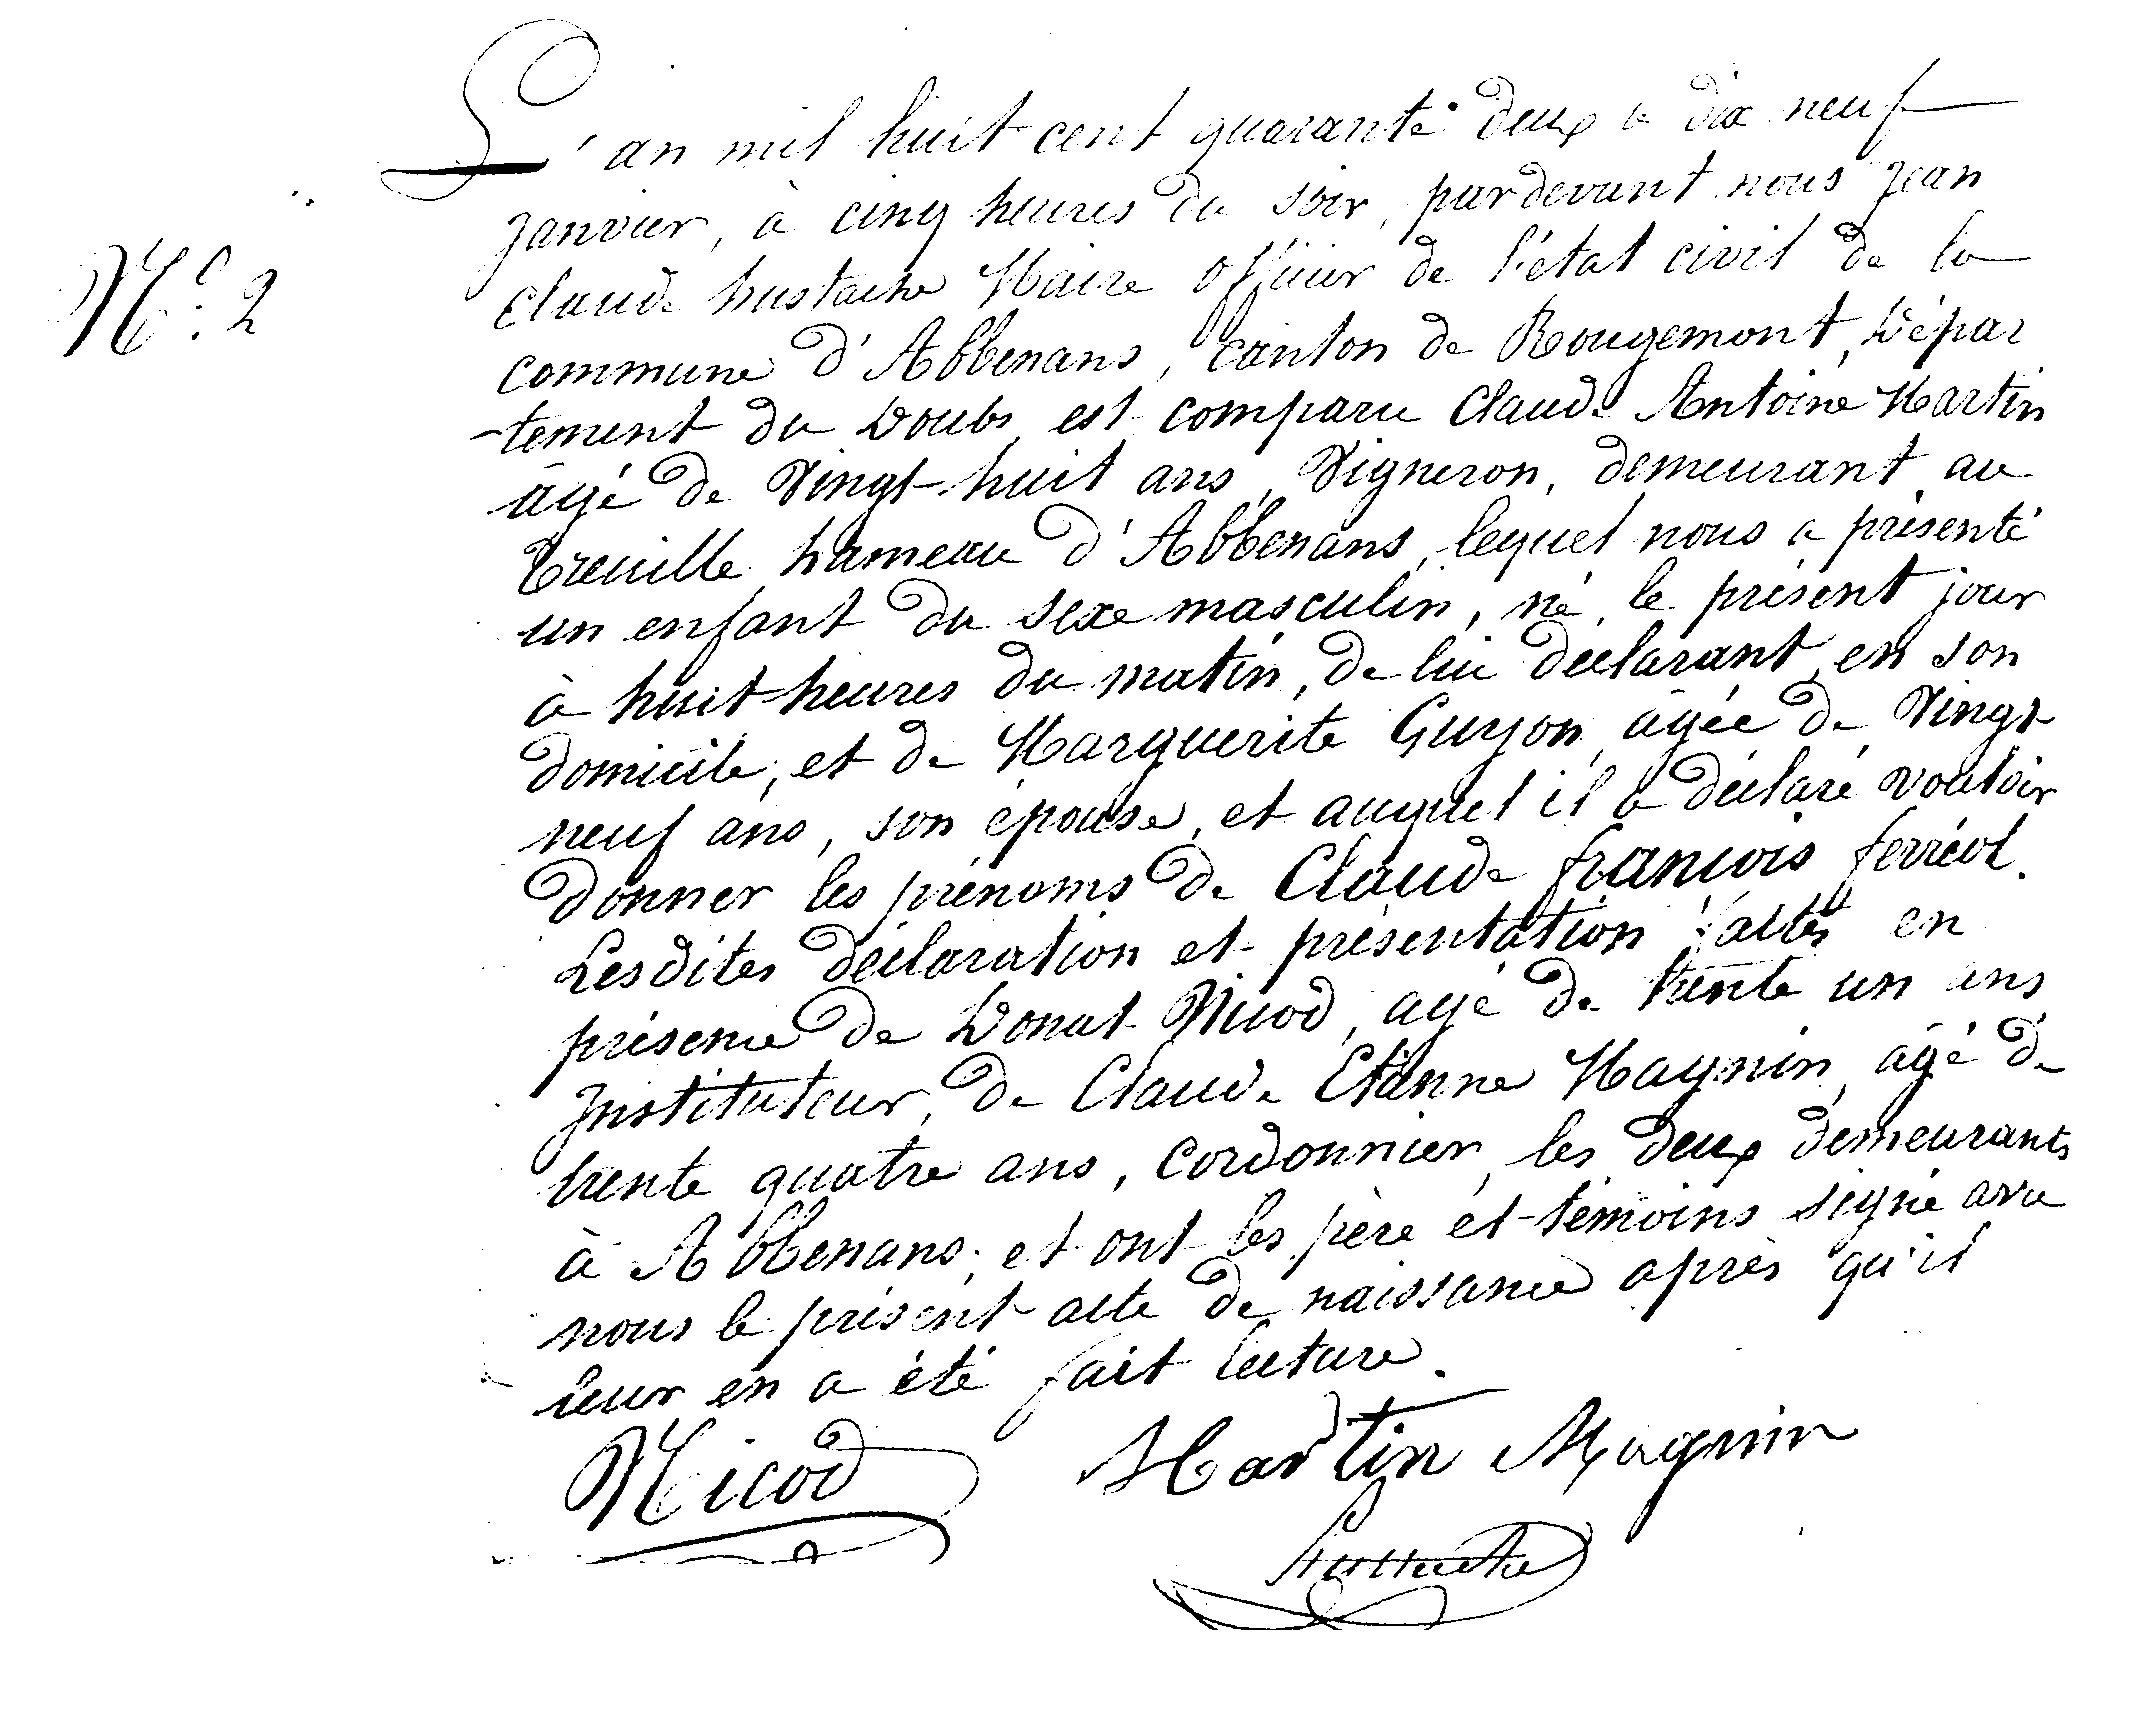 N.º 2
L'an mil huit cent quarante deux a dix neuf
Janvier, à cinq heures du soir, pardevant nous Jean
Claude hustache Maire Officier de l'état civil de la
commune d'Abbenans, canton de Rougemont, Dépar
-tement du Doubs, est comparu Claude Antoine Martin
âgé de Vingt-huit ans, Vigneron, demeurant au
Treuille, hameau d'Abbenans, lequel nous a présenté
un enfant du sexe masculin, né le présent jour
à huit heures du matin, de lui déclarant, en son
domicile, et de Marguerite Guyon, âgée de Vingt
neuf ans, son épouse, et auquel il a déclaré vouloir
donner les prénoms de Claude françois ferréol.
Lesdites déclaration et présentation faites en
présence de Donat Nicod, agé de trente un ans
Instituteur, de Claude Etienne Magnin, âgé de
trente quatre ans, cordonnier, les deux demeurants
à Abbenans; et ont les père et témoins signé avec
nous le présent acte de naissance après qu'il
leur en a été fait lecture.
Nicod Martin Magnin
hustache